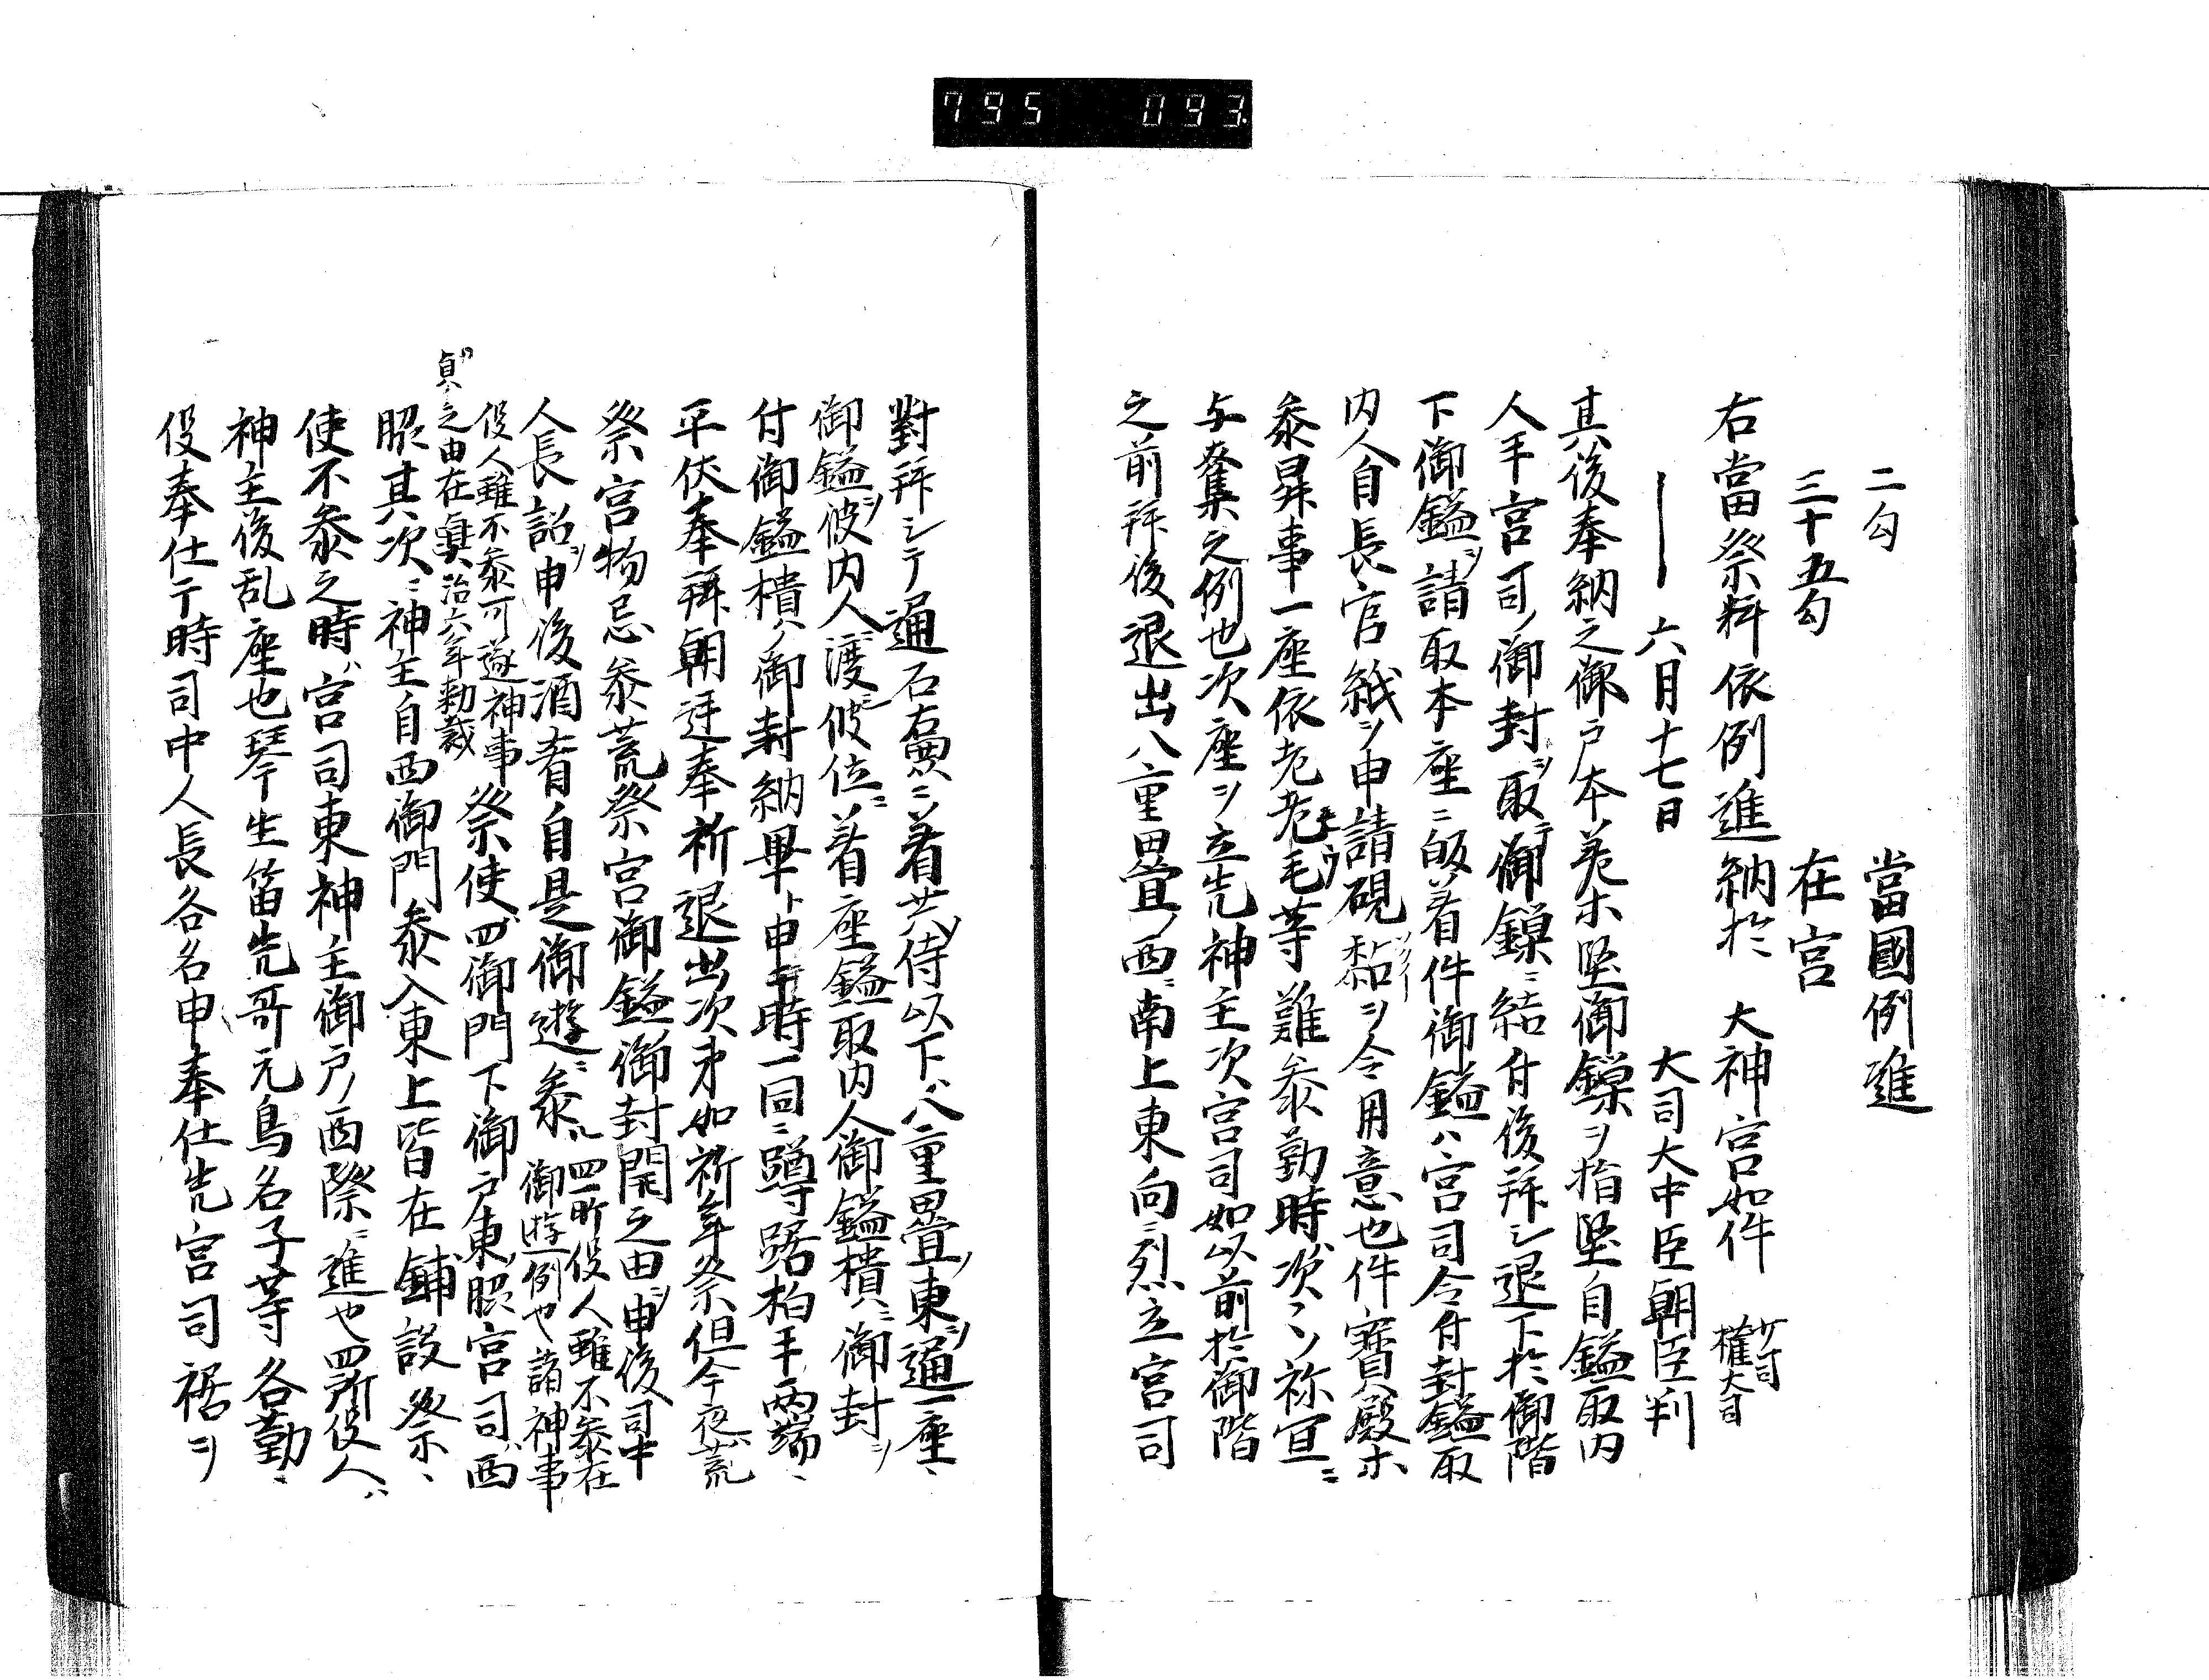 795 093
二勾 當國例進
三十五勾 在宮
右當祭料依例進納於 大神宮如件 少司 權大司
六月十七日 大司大中臣朝臣判
其後奉納之御戸本 木堅御鎰ヲ指堅自鎰取内
人手宮司ノ御封ヲ取テ御鏁ニ結付後拜シ退下於御階
下御鎰ヲ請取本座ニ皈着件御鎰ハ宮司令付封鎰取
内人自長官紙ヲ申請硯 ヲ令用意也件寳殿木
叅昇事一座依老 老毛等難叅勤時ハ次ノ祢宜ニ
与奪之例也次座ヲ立先神主次宮司如以前於御階
之前拜後退出八重疊ノ西ニ南上東向ニ烈立宮司
對拜シテ通石 ニ着共ノ侍以下ハ八重疊ノ東ヲ通一座ハ
御鎰ヲ彼内人ニ渡シ彼位ニ着座鎰取内人御鎰櫃ニ御封ヲ
付御鎰櫃ノ御封納畢ト申テ時一同ニ蹲踞柏手兩端
平伏奉拜朝廷奉祈退出次第如祈年祭但今夜荒
祭宮物忌叅荒祭宮御鎰ノ御封開之由ヲ申後司中
人長詔ヲ申後酒肴自是御遊ニ叅ル 四所役人雖不叅在 御遊例也諸神事
役人雖不叅可遂神事 祭使ハ四御門下御戸東脇宮司ハ西
貞 之由在眞治六年勅裁
脇其次ニ神主自西御門叅入東上皆在鋪設祭
使不叅之時ハ宮司東神主御戸ノ西際ニ進也四所役人ハ
神主後乱座也琴生笛生哥元鳥名子等各勤
役奉仕テ時司中人長各名申奉仕先宮司裾ヲ